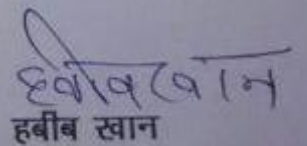 हबीब खान
हबीब खान